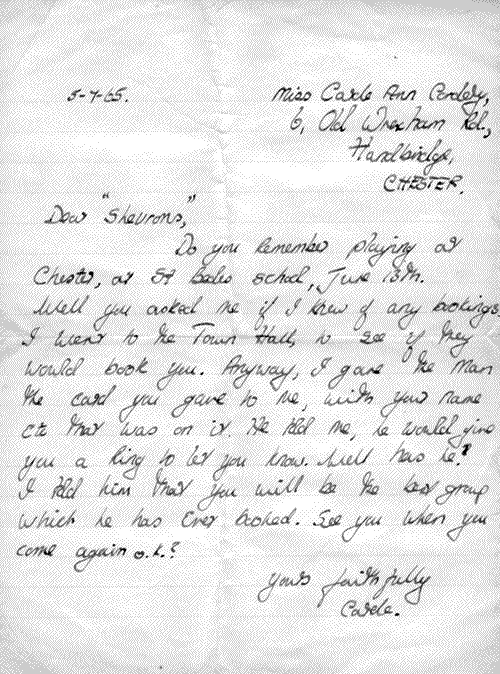 5-7-65.
Miss Carole Ann
6, Old Wrexham Rd.,
Handbridge,
CHESTER.
Dear "Shevrons,"
Do you remember playing at
Chester, at St Bedes school, June 13th.
Well you asked me if I knew of any bookings
I went to the Town Hall, to see if they
would book you. Anyway, I gave the man
the card you gave to me, with your name
etc that was on it. He told me, he would give
you a ring to let you know. Well has he?
I told him that you will be the best group
which he has ever booked. See you when you
come again o.k.?
yours faithfully
Carole.